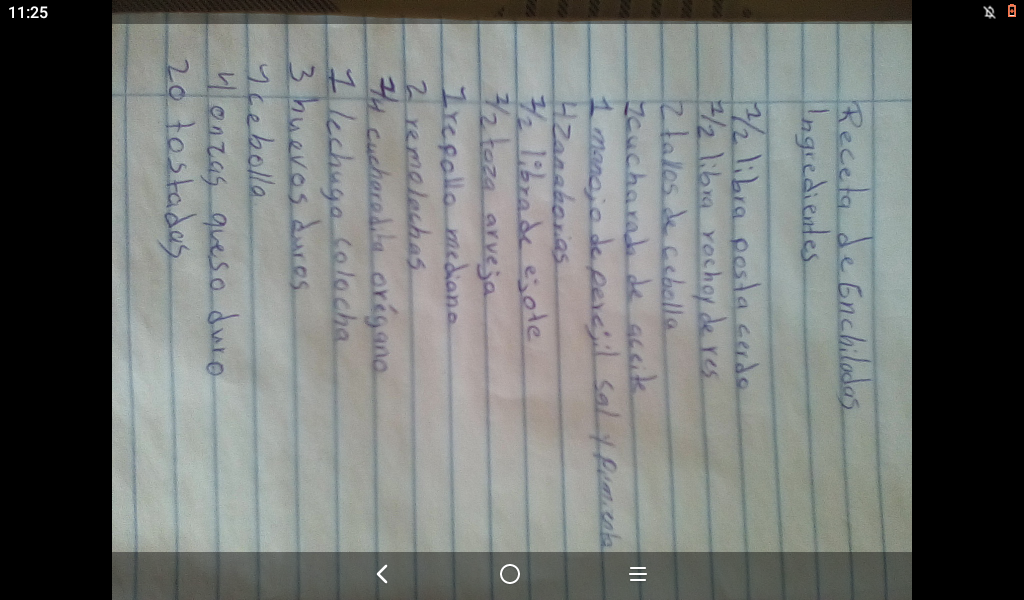 11:25
Receta de Enchiladas
Ingredientes
1/2 libra posta cerdo
1/2 libra rochoy de res
2 tallos de cebolla
1 cucharada de aceite
1 manojo de perejil sal y pimienta
4 zanahorias
1/2 libra de ejote
1/2 taza arveja
1 repollo mediano
2 remolachas
1/4 cucharadita orégano
1 lechuga colocha
3 huevos duros
1 cebolla
4 onzas queso duro
20 tostadas